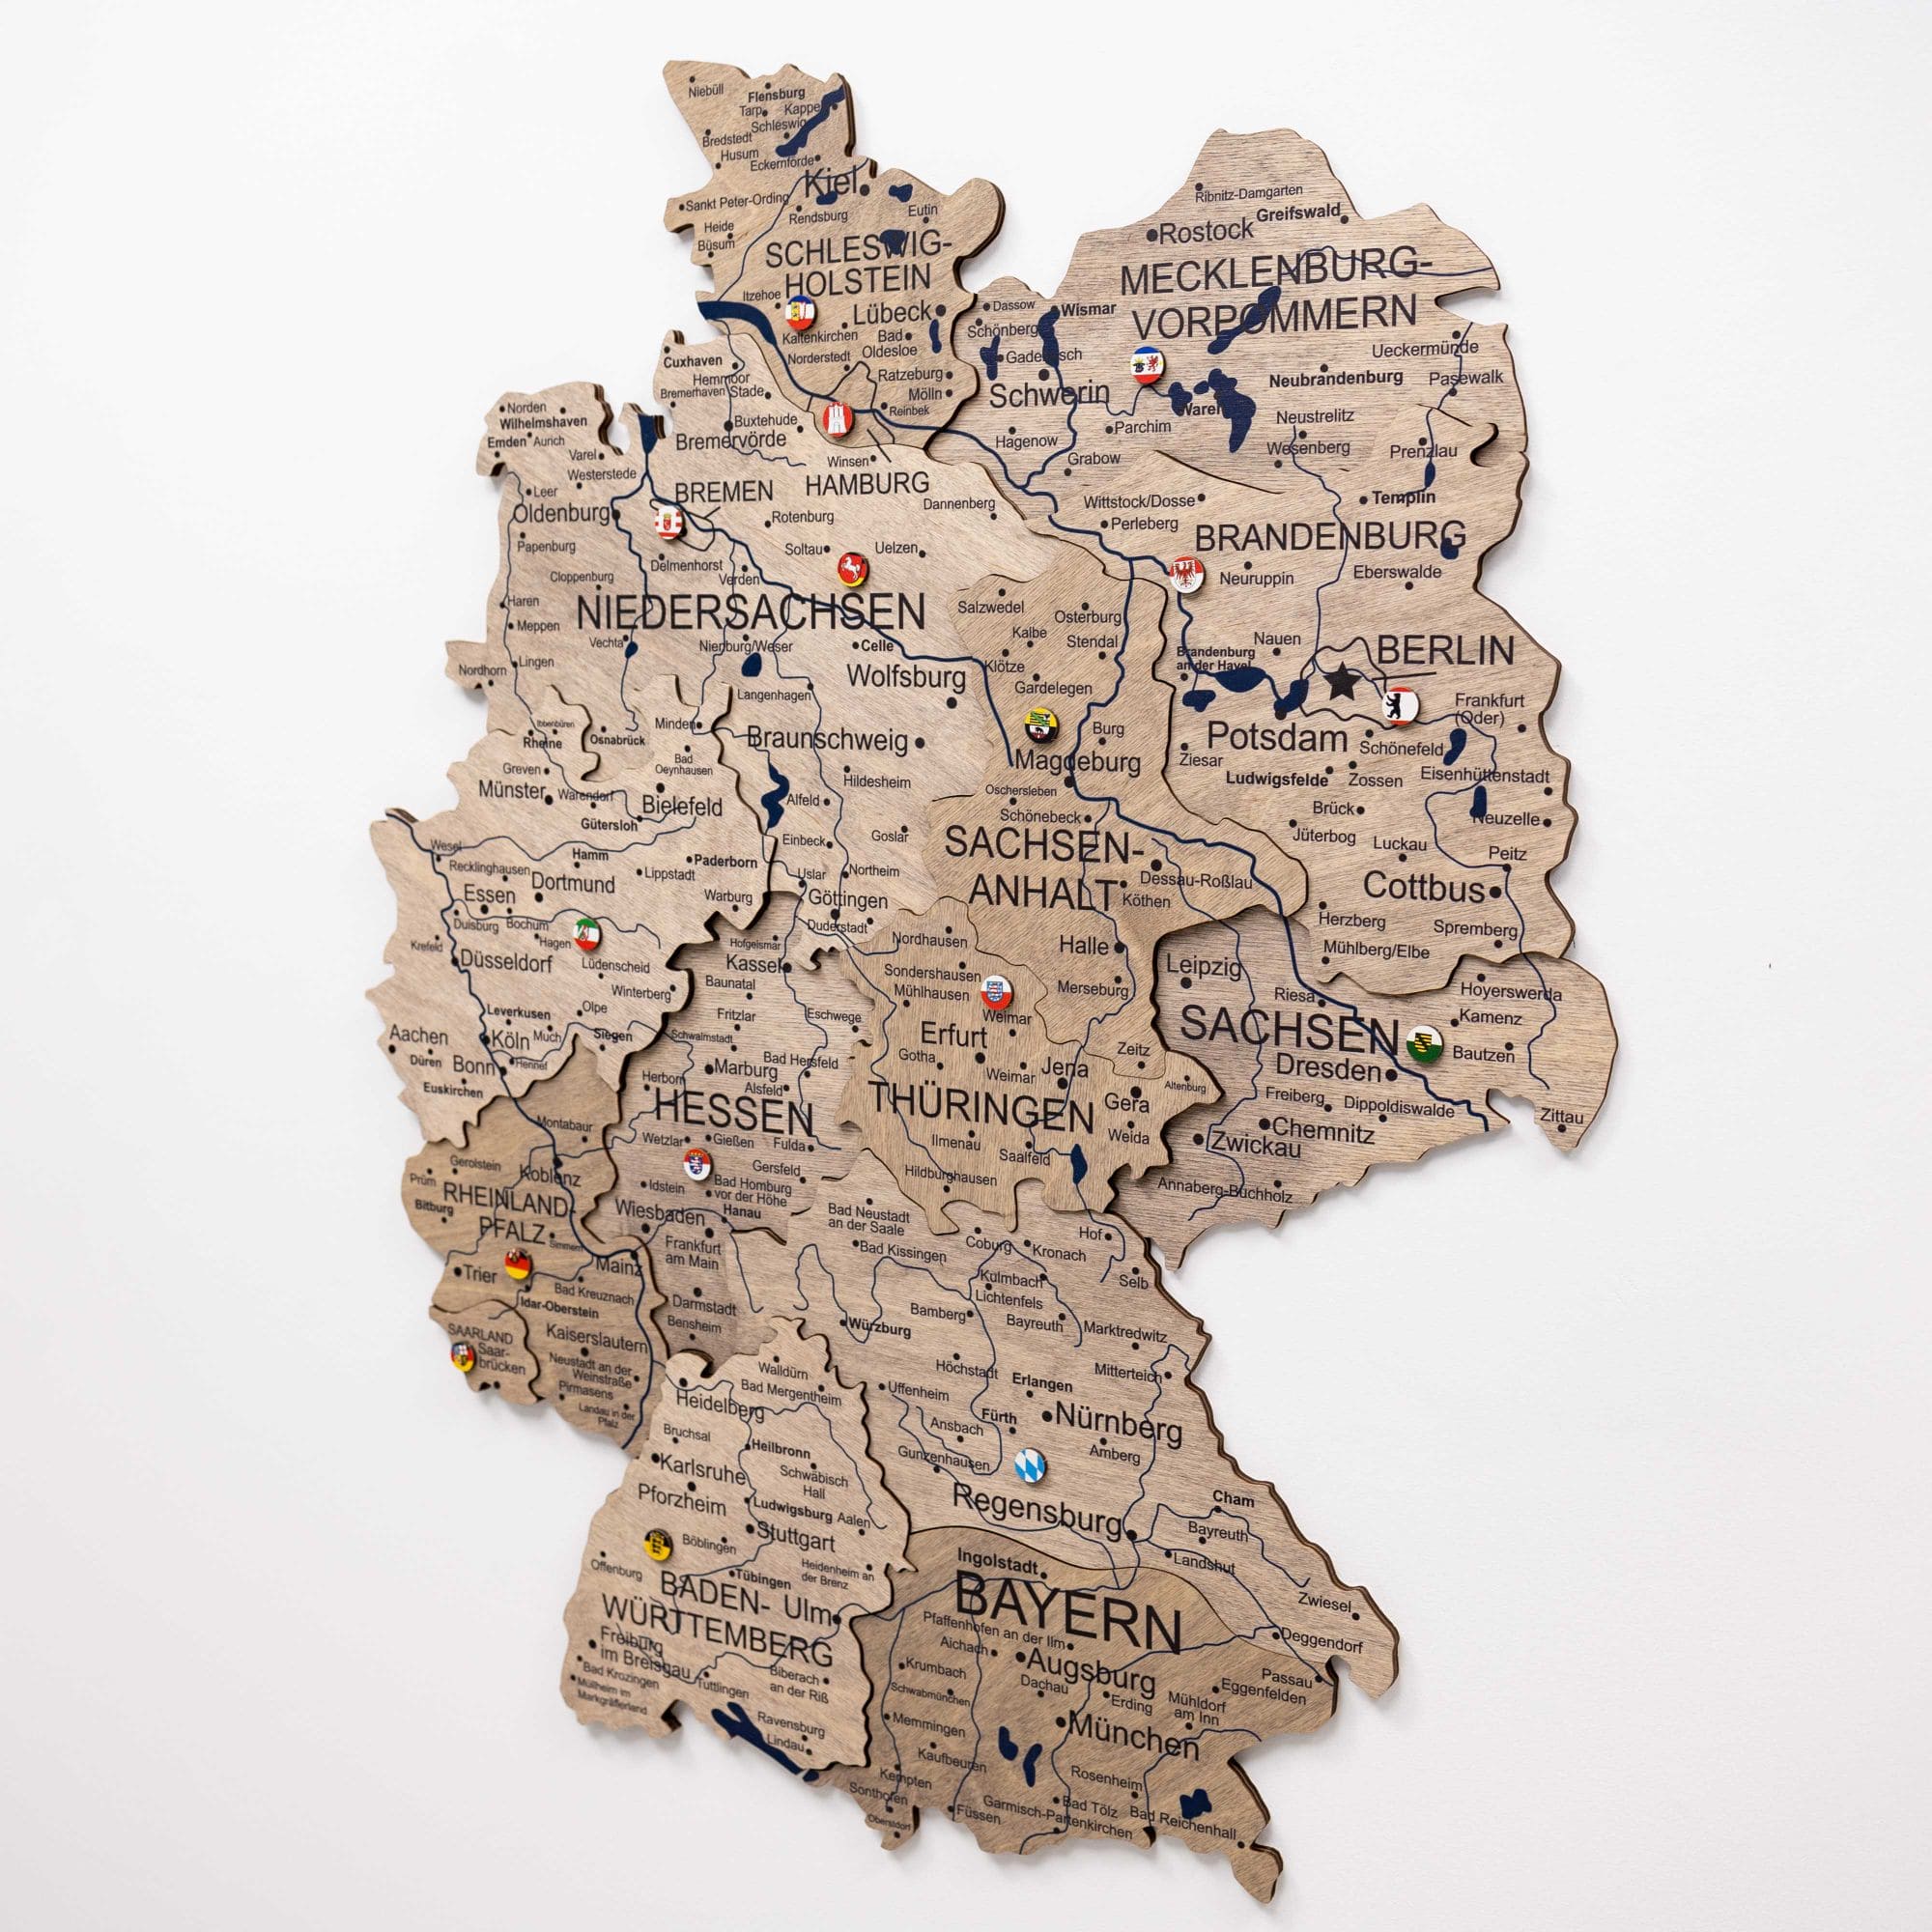 Niebüll
Flensburg
Tarp
Kappe
Schleswig
Bredstedt
Husum
Eckernförde
Kiel
Sankt Peter-Ording
Rendsburg
Eutin
Heide
Büsum
SCHLESWIG-
HOLSTEIN
Itzehoe
Lübeck
Kaltenkirchen
Bad
Oldesloe
Norderstedt
Ratzeburg
Mölln
Reinbek
Ribnitz-Damgarten
Greifswald
Rostock
MECKLENBURG-
VORPOMMERN
Dassow
Wismar
Schönberg
Gade sch
Schwerin
Ueckermünde
Neubrandenburg
Pasewalk
Waren
Neustrelitz
Parchim
Wesenberg
Prenzlau
Hagenow
Grabow
Cuxhaven
Hemmoor
Bremerhaven
Stade
Norden
Wilhelmshaven
Emden
Aurich
Buxtehude
Bremervörde
Varel
Westerstede
Winsen
HAMBURG
BREMEN
Leer
Oldenburg
Dannenberg
Rotenburg
Papenburg
Soltau
Uelzen
Delmenhorst
Cloppenburg
Verden
Haren
NIEDERSACHSEN
Meppen
Vechta
Nienburg/Weser
Celle
Nordhorn
Lingen
Wolfsburg
Langenhagen
Wittstock/Dosse
Templin
Perleberg
BRANDENBURG
Neuruppin
Eberswalde
Salzwedel
Osterburg
Kalbe
Stendal
Klötze
Gardelegen
Nauen
BERLIN
Brandenburg
an der Havel
Frankfurt
(Oder)
Potsdam
Schönefeld
Ziesar
Ludwigsfelde
Zossen
Eisenhüttenstadt
Brück
Neuzelle
Jüterbog
Luckau
Peitz
Cottbus
Herzberg
Spremberg
Mühlberg/Elbe
Burg
Magdeburg
Oschersleben
Schönebeck
SACHSEN-
ANHALT
Dessau-Roßlau
Köthen
Halle
Merseburg
Zeitz
Ibbenbüren
Minden
Rheine
Osnabrück
Braunschweig
Greven
Bad
Oeynhausen
Hildesheim
Münster
Warendorf
Bielefeld
Alfeld
Gütersloh
Einbeck
Goslar
Wesel
Hamm
Paderborn
Recklinghausen
Lippstadt
Uslar
Northeim
Essen
Dortmund
Warburg
Göttingen
Duisburg
Bochum
Duderstadt
Krefeld
Hagen
Düsseldorf
Lüdenscheid
Winterberg
Leverkusen
Olpe
Aachen
Köln
Much
Siegen
Düren
Bonn
Hennef
Euskirchen
Hofgeismar
Kassel
Baunatal
Fritzlar
Eschwege
Schwalmstadt
Bad Hersfeld
Marburg
Herborn
Alsfeld
HESSEN
Wetzlar
Gießen
Fulda
Gersfeld
Idstein
Bad Homburg
vor der Höhe
Wiesbaden
Hanau
Frankfurt
am Main
Darmstadt
Bensheim
Nordhausen
Sondershausen
Mühlhausen
Weimar
Erfurt
Gotha
Weimar
Jena
Altenburg
THÜRINGEN
Gera
Ilmenau
Weida
Saalfeld
Hildburghausen
Leipzig
Hoyerswerda
Riesa
Kamenz
SACHSEN
Bautzen
Dresden
Freiberg
Dippoldiswalde
Zittau
Chemnitz
Zwickau
Annaberg-Buchholz
Montabaur
Gerolstein
Koblenz
Prüm
RHEINLAND-
Bitburg
PFALZ
Simmern
Trier
Mainz
Bad Kreuznach
Idar-Oberstein
SAARLAND
Saar-
brücken
Kaiserslautern
Neustadt an der
Weinstraße
Pirmasens
Landau in der
Pfalz
Bad Neustadt
an der Saale
Bad Kissingen
Coburg
Kronach
Hof
Kulmbach
Selb
Lichtenfels
Bamberg
Bayreuth
Marktredwitz
Würzburg
Höchstadt
Mitterteich
Uffenheim
Erlangen
Fürth
Nürnberg
Ansbach
Amberg
Gunzenhausen
Regensburg
Cham
Bayreuth
Landshut
Zwiesel
Ingolstadt
BAYERN
Deggendorf
Pfaffenhofen an der Ilm
Aichach
Augsburg
Passau
Krumbach
Eggenfelden
Dachau
Erding
Mühldorf
am Inn
Schwabmünchen
Memmingen
München
Kaufbeuren
Kempten
Rosenheim
Sonthofen
Bad Tölz
Bad Reichenhall
Garmisch-Partenkirchen
Füssen
Oberstdorf
Walldürn
Bad Mergentheim
Heidelberg
Bruchsal
Heilbronn
Karlsruhe
Schwäbisch
Hall
Pforzheim
Ludwigsburg
Aalen
Stuttgart
Böblingen
Heidenheim an
der Brenz
Offenburg
Tübingen
BADEN-
Ulm
WÜRTTEMBERG
Freiburg
im Breisgau
Bad Krozingen
Biberach
an der Riß
Müllheim im
Markgräflerland
Tuttlingen
Ravensburg
Lindau